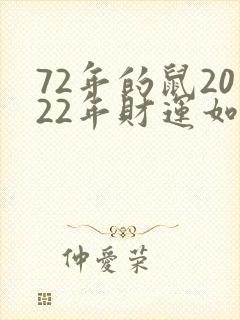 72年的鼠20
22年财运如
仲爱荣